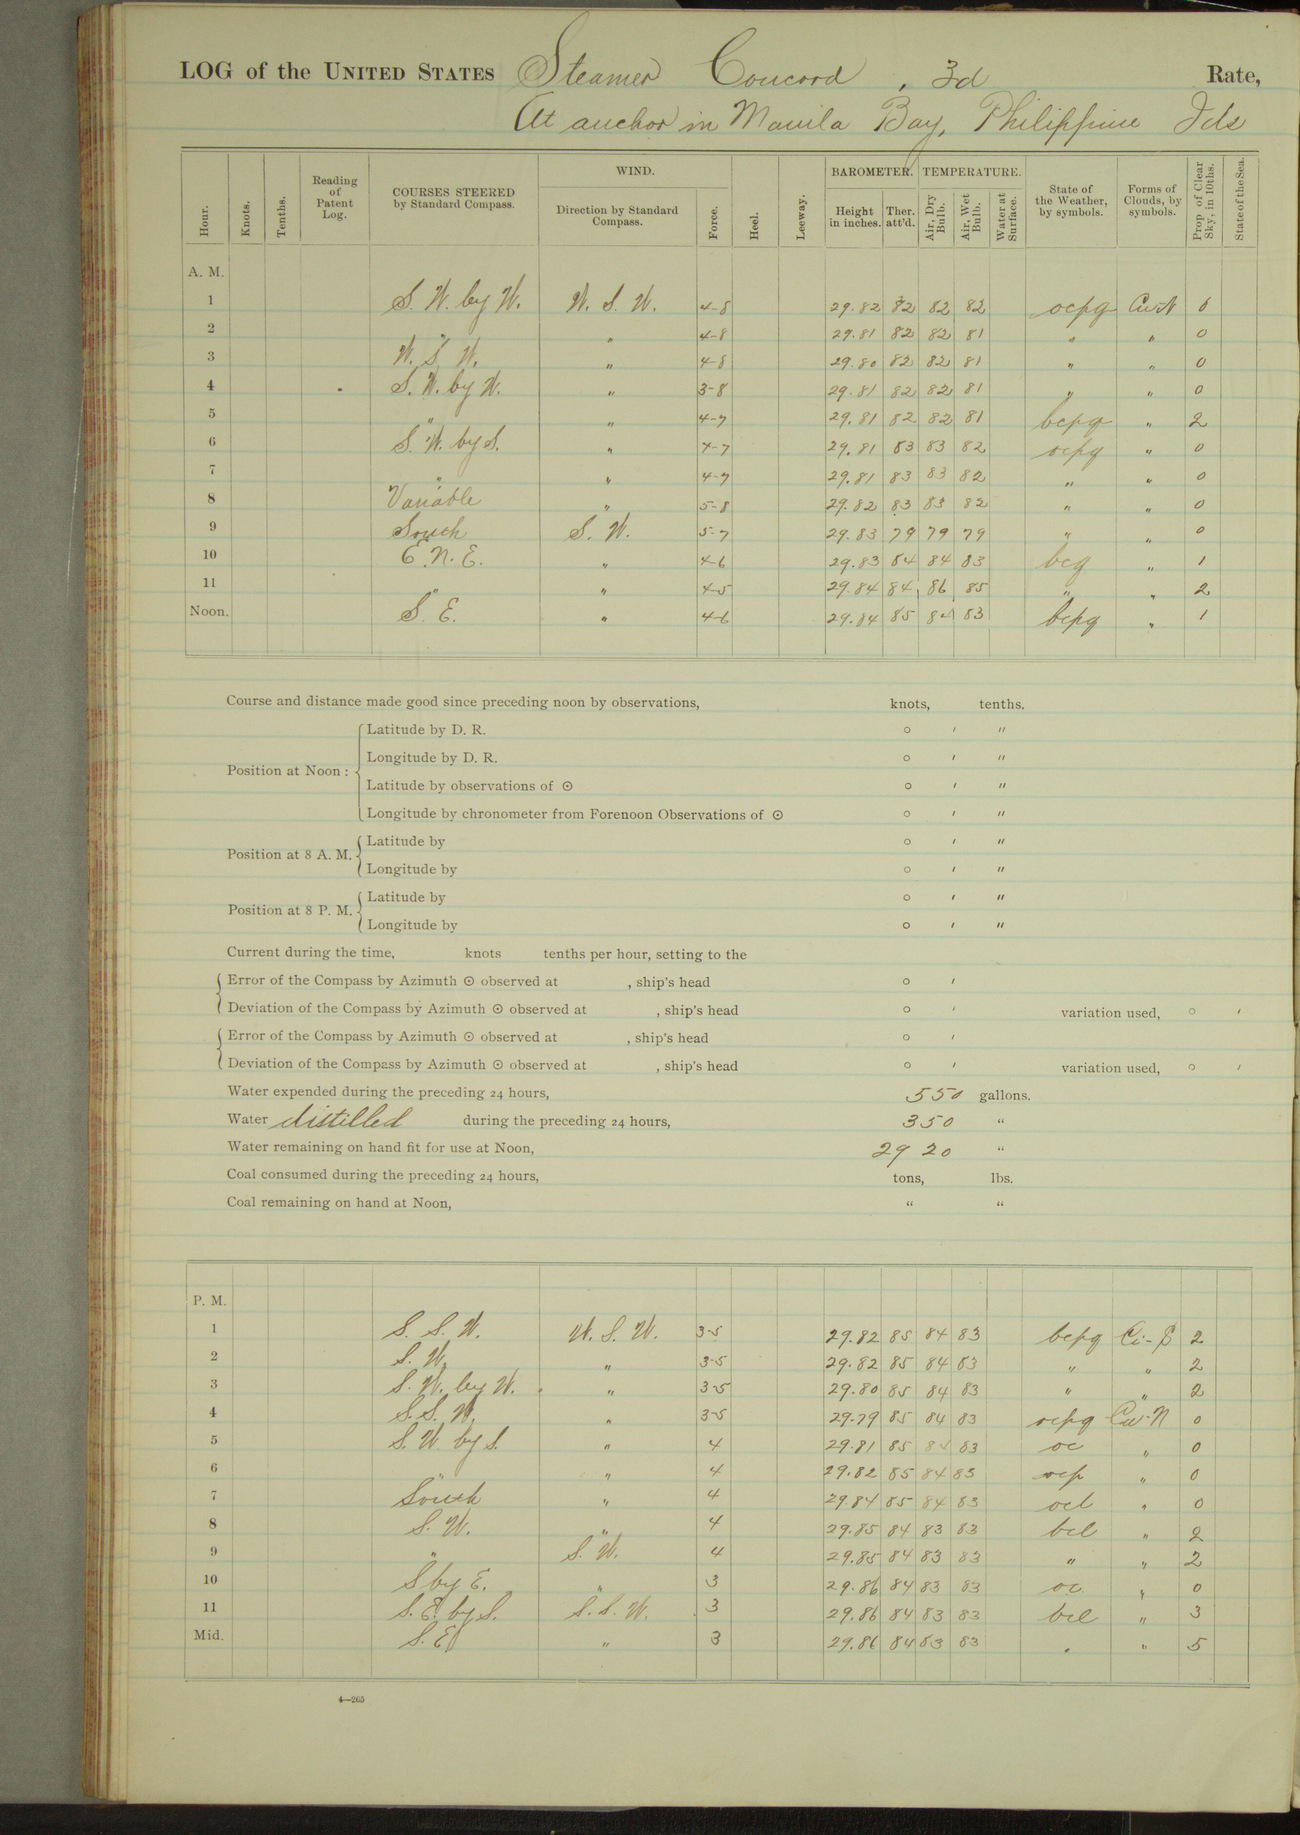 LOG of the UNITED STATES Steamer Concord, 3d Rate,
At anchor in Manila Bay, Philippine Ids
Hour. Knots. Tenths. Reading of Patent Log. COURSES STEERED by Standard Compass. WIND. Direction by Standard Compass. Force. Heel. Leeway. BAROMETER. Height in inches. Ther. att'd. TEMPERATURE. Air, Dry Bulb. Air, Wet Bulb. Water at Surface. State of the Weather, by symbols. Forms of Clouds, by symbols. Prop. of Clear Sky, in 10ths. State of the Sea.
A. M.
1 S. W. by W. W. S. W. 4-8 29.82 82 82 82 ocpq Cu-N 0
2 " " 4-8 29.81 82 82 81 " " 0
3 W. S. W. " 4-8 29.80 82 82 81 " " 0
4 S. W. by W. " 3-8 29.81 82 82 81 " " 0
5 " " 4-7 29.81 82 82 81 bcpq " 2
6 S. W. by S. " 4-7 29.81 83 83 82 ocpq " 0
7 " " 4-7 29.81 83 83 82 " " 0
8 Variable " 5-8 29.82 83 83 82 " " 0
9 South S. W. 5-7 29.83 79 79 79 " " 0
10 E. N. E. " 4-6 29.83 84 84 83 bcq " 1
11 " " 4-5 29.84 84 86 85 " " 2
Noon. S. E. " 4-6 29.84 85 84 83 bcpq " 1
Course and distance made good since preceding noon by observations, knots, tenths.
Position at Noon: Latitude by D. R. ° ′ ″
Longitude by D. R. ° ′ ″
Latitude by observations of ☉ ° ′ ″
Longitude by chronometer from Forenoon Observations of ☉ ° ′ ″
Position at 8 A. M. Latitude by ° ′ ″
Longitude by ° ′ ″
Position at 8 P. M. Latitude by ° ′ ″
Longitude by ° ′ ″
Current during the time, knots tenths per hour, setting to the
Error of the Compass by Azimuth ☉ observed at , ship's head ° ′
Deviation of the Compass by Azimuth ☉ observed at , ship's head ° ′ variation used, ° ′
Error of the Compass by Azimuth ☉ observed at , ship's head ° ′
Deviation of the Compass by Azimuth ☉ observed at , ship's head ° ′ variation used, ° ′
Water expended during the preceding 24 hours, 550 gallons.
Water distilled during the preceding 24 hours, 350 "
Water remaining on hand fit for use at Noon, 2920 "
Coal consumed during the preceding 24 hours, tons, lbs.
Coal remaining on hand at Noon, " "
P. M.
1 S. S. W. W. S. W. 3-5 29.82 85 84 83 bcpq Ci-S 2
2 S. W. " 3-5 29.82 85 84 83 " " 2
3 S. W. by W. " 3-5 29.80 85 84 83 " " 2
4 S. S. W. " 3-5 29.79 85 84 83 ocpq Cu-N 0
5 S. W. by S. " 4 29.81 85 84 83 oc " 0
6 " " 4 29.82 85 84 83 ocp " 0
7 South " 4 29.84 85 84 83 ocl " 0
8 S. W. " 4 29.85 84 83 83 bcl " 2
9 " S. W. 4 29.85 84 83 83 " " 2
10 S by E. " 3 29.86 84 83 83 oc " 0
11 S. E. by S. S. S. W. 3 29.86 84 83 83 bcl " 3
Mid. S. E. " 3 29.86 84 83 83 " " 5
4—265